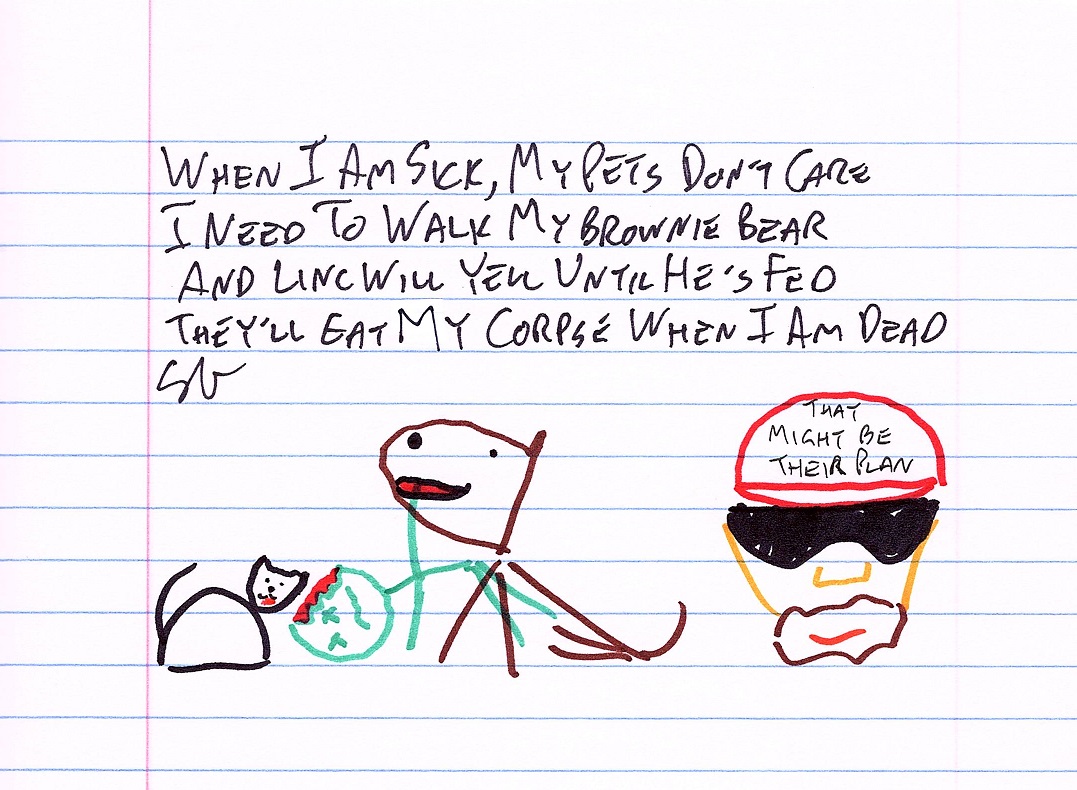 WHEN I AM SICK, MY PETS DON'T CARE
I NEED TO WALK MY BROWNIE BEAR
AND LINC WILL YELL UNTIL HE'S FED
THEY'LL EAT MY CORPSE WHEN I AM DEAD
THAT
MIGHT BE
THEIR PLAN